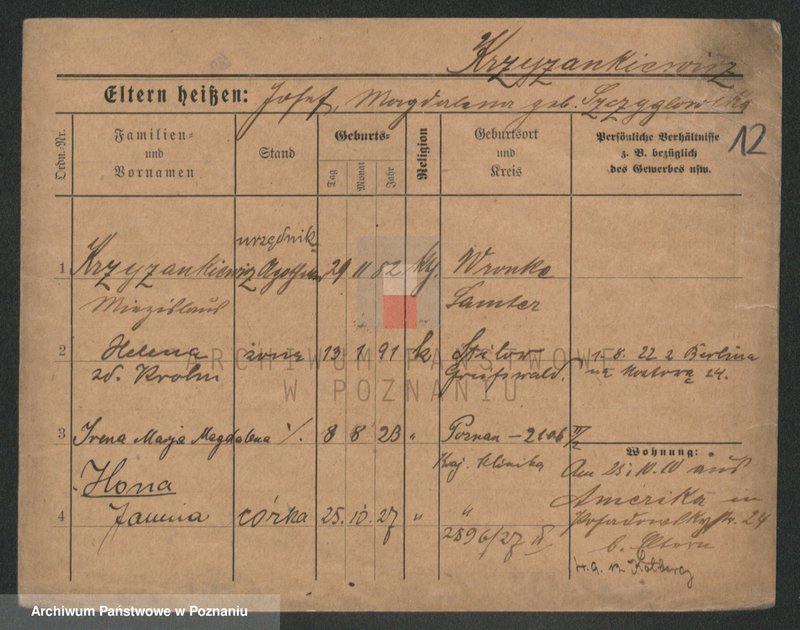 Krzyzankiewicz
Eltern heißen: Josef, Magdalena geb. Szczyglowska
12
Ordn.-Nr.
Familien- und Vornamen
Stand
Geburts-
Tag
Monat
Jahr
Religion
Geburtsort und Kreis
Persönliche Verhältnisse
z. B. bezüglich
des Gewerbes usw.
urzędnik
1 Krzyzankiewicz 29 11 82 kth. Wronke
Miezislaus Samter
2 Helena żona 13 1 91 k
zd. Krohn Greifswald.
1. 8. 22 z Berlina
na 24.
3 Irena Marja Magdalena 8 8 23 " Poznan - 2106
Wohnung:
Klinika
Ilona
4 Janina córka 25. 10. 27 " "
2896/27
Am 25.10. aus
Amerika in
24
b. Eltern
Kolberg
ARCHIWUM PAŃSTWOWE
W POZNANIU
Archiwum Państwowe w Poznaniu